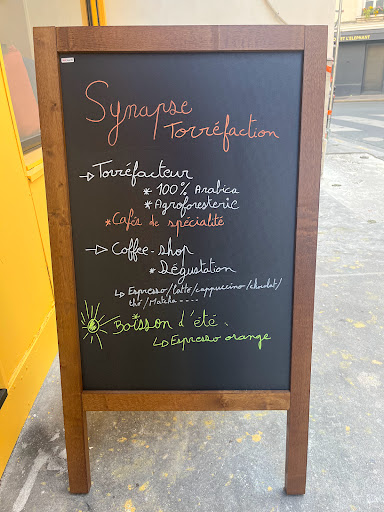 ET L'ELEPHANT
Synapse
Torréfaction
→ Torréfacteur
* 100% Arabica
* Agroforesterie
* Cafés de spécialité
→ Coffee-shop
* Dégustation
↳ Espresso/latté/cappuccino/chocolat/
thé/Matcha ....
Boisson d'été.
↳ Espresso orange